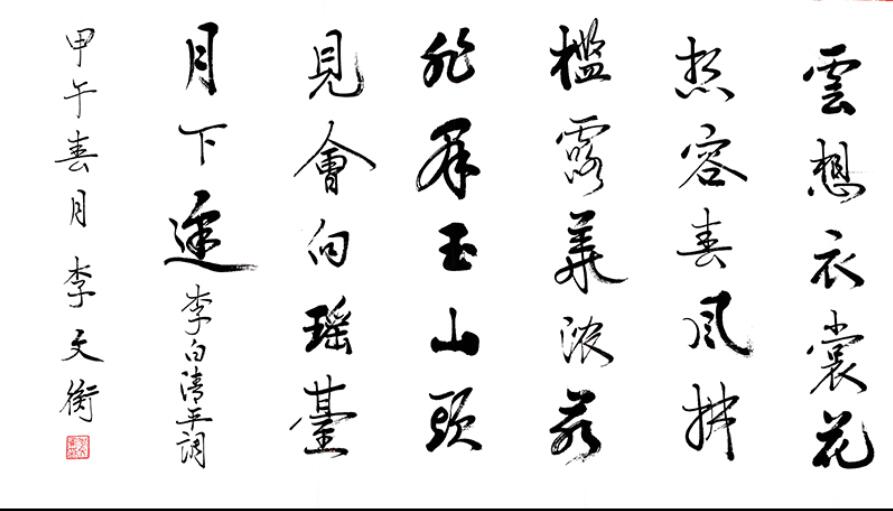 雲想衣裳花
想容春风拂
槛露華浓若
非群玉山頭
見會向瑶臺
月下逢 李白清平调
甲午春月 李文衡